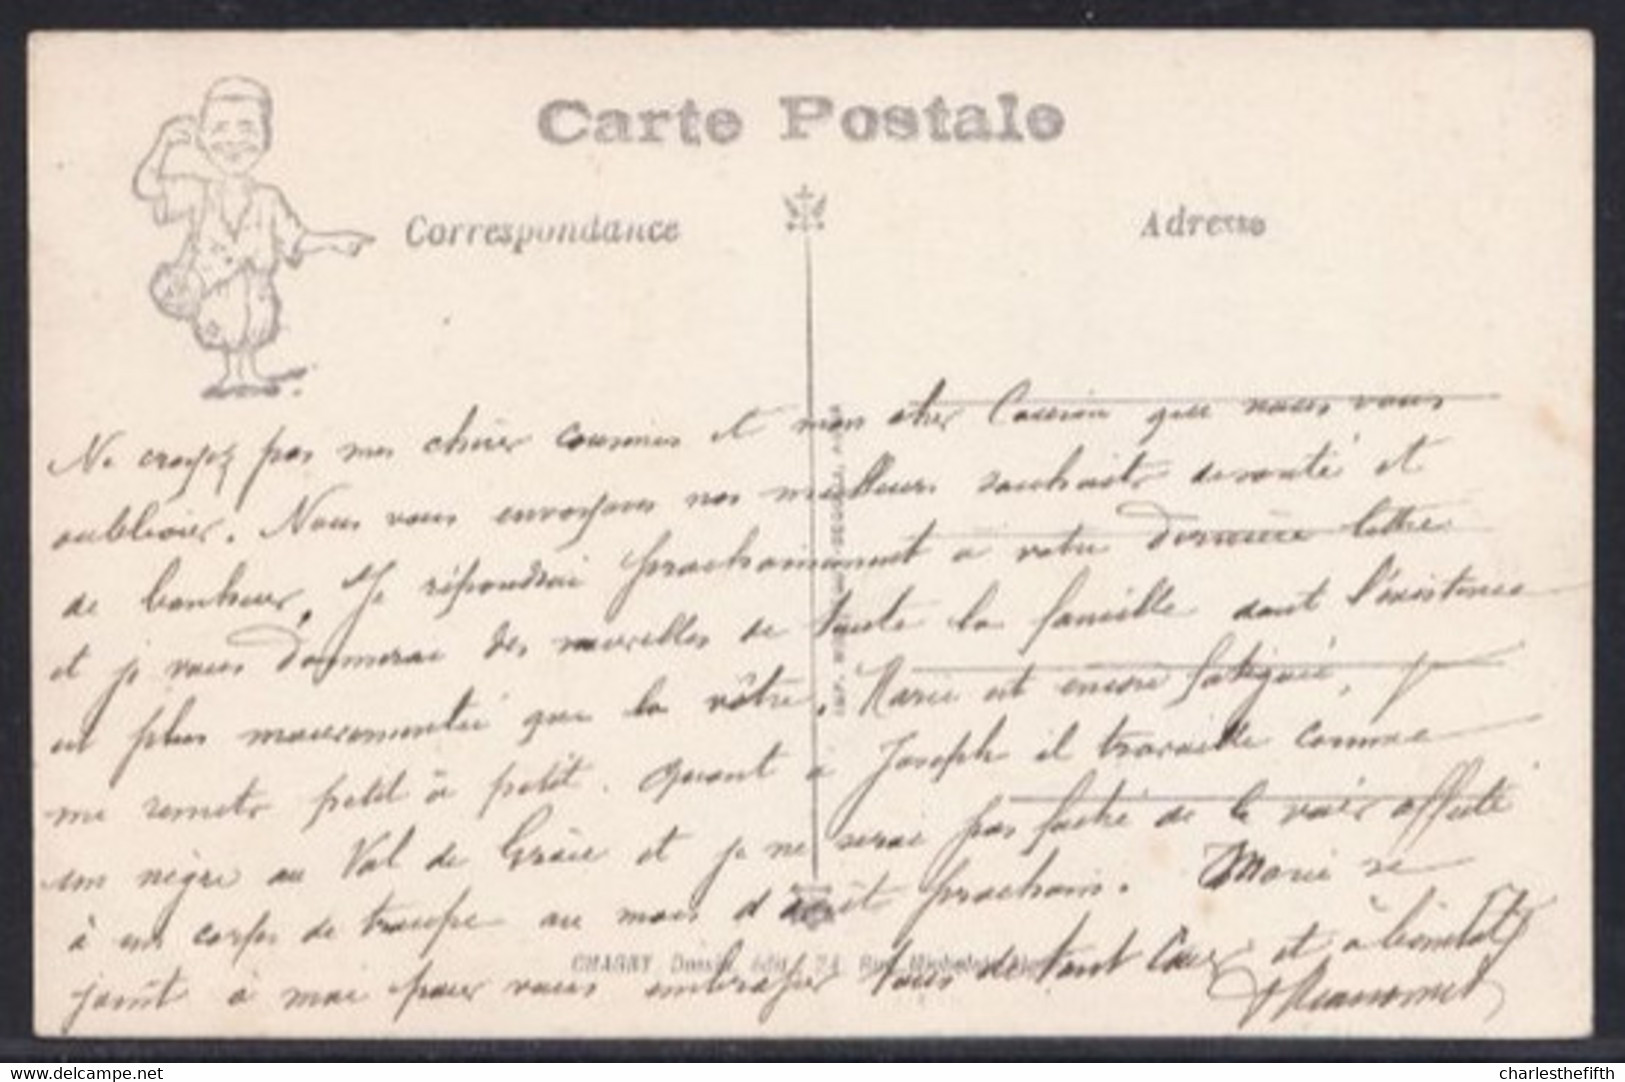 Carte Postale
Correspondance
Adresse
Ne croyez pas mes chères cousines et mon cher Cousin que nous vous
oublions. Nous vous envoyons nos meilleurs souhaits de santé et
de bonheur. Je répondrai prochainement à votre dernière lettre
et je vous donnerai des nouvelles de toute la famille dont l'existence
est plus mouvementée que la vôtre. Marie est encore fatiguée,
me remets petit à petit. Quant à Joseph il travaille comme
un nègre au Val de Grâce et je ne serai pas faché de le voir affecté
à un corps de troupe au mois d'août prochain. Marie se
joint à moi pour vous embrasser tous de tout Cœur et à bientôt
CHAGNY édit. 24 Rue Michelet
delcampe.net
charlesthefifth